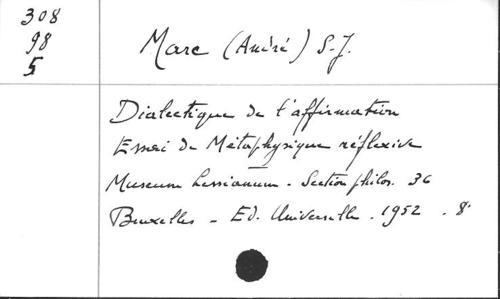 308
98
5
Marc (André) S.J.
Dialectique de l'affirmation
Essai de Métaphysique réflexive
Museum Lessianum - Section philos. 36
Bruxelles - Ed. Universelle . 1952 . 8°